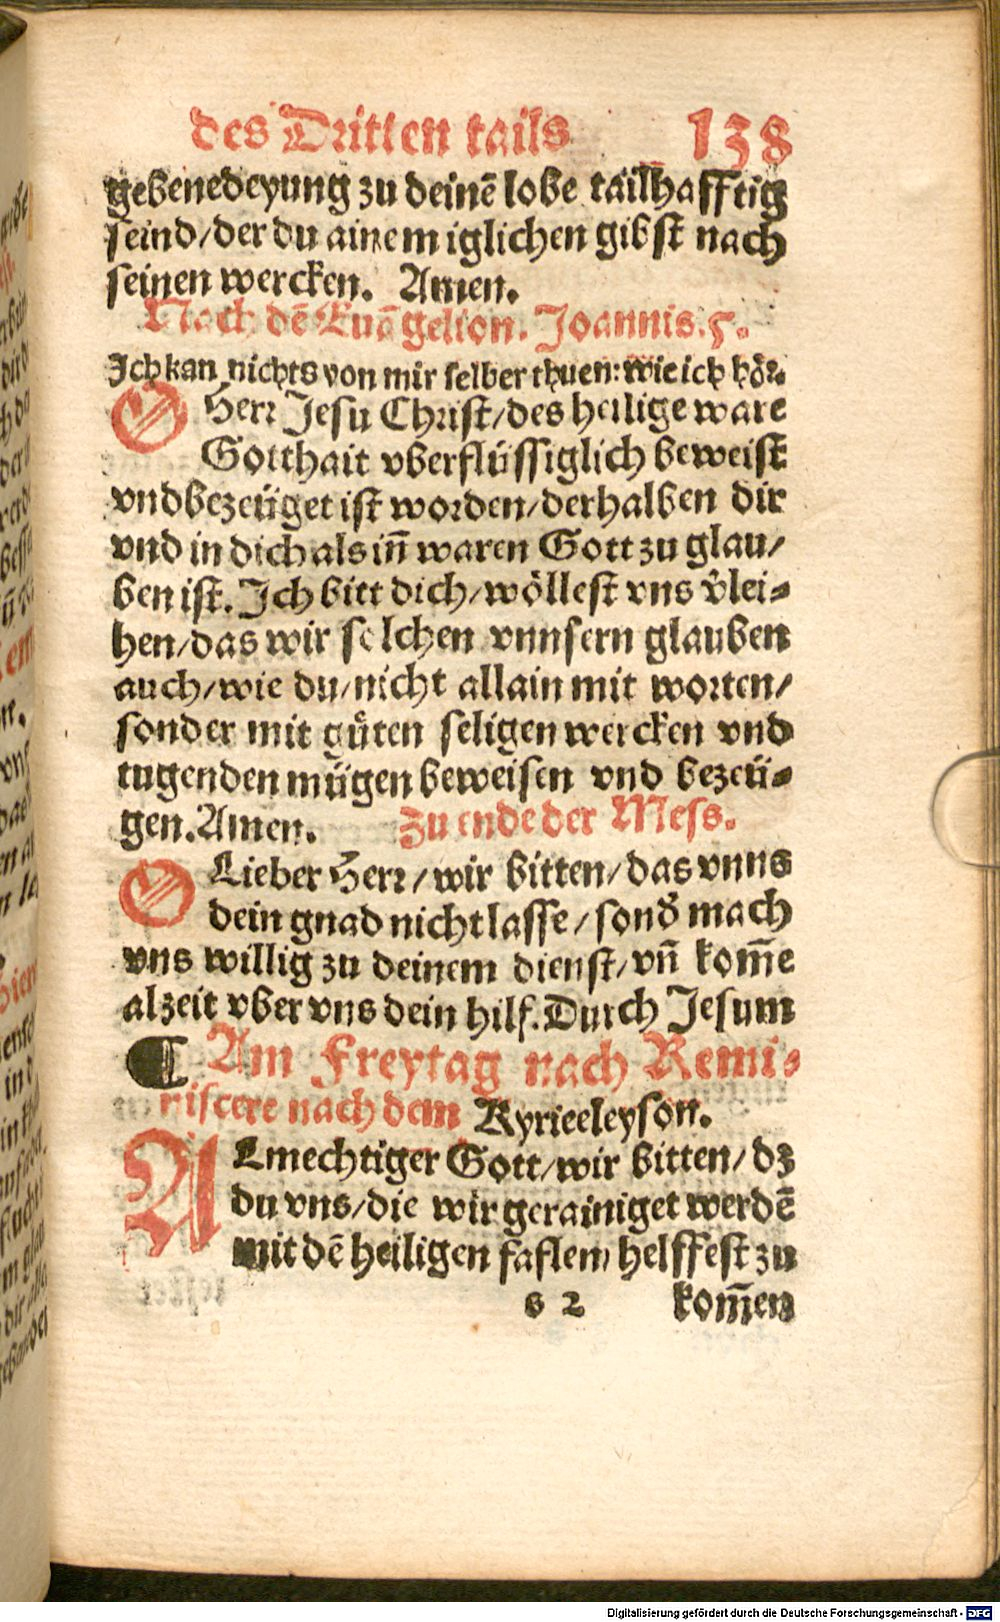 des Dritten tails 138
gebenedeyung zu deinē lobe tailhafftig
seind/der du ainem iglichen gibst nach
seinen wercken. Amen.
Nach dē Euāgelion. Joannis.5.
Ich kan nichts von mir selber thuen: wie ich hör.
O Herr Jesu Christ/des heilige ware
Gotthait vberflüssiglich beweist
vnd bezeüget ist worden/derhalben dir
vnd in dich als in̄ waren Gott zu glau/
ben ist. Ich bitt dich/wöllest vns v̄lei-
hen/das wir solchen vnnsern glauben
auch/wie du/nicht allain mit worten/
sonder mit gůten seligen wercken vnd
tugenden mügen beweisen vnd bezeü-
gen. Amen. Zu ende der Mess.
O Lieber Herr/wir bitten/das vnns
dein gnad nicht lasse/sond̄ mach
vns willig zu deinem dienst/vn̄ kom̄e
alzeit vber vns dein hilf. Durch Jesum
¶ Am Freytag nach Remi-
niscere nach dem Kyrieeleyson.
ALmechtiger Gott/wir bitten/dz
du vns/die wir gerainiget werdē
mit dē heiligen fasten helffest zu
s 2 kom̄en
Digitalisierung gefördert durch die Deutsche Forschungsgemeinschaft - DFG